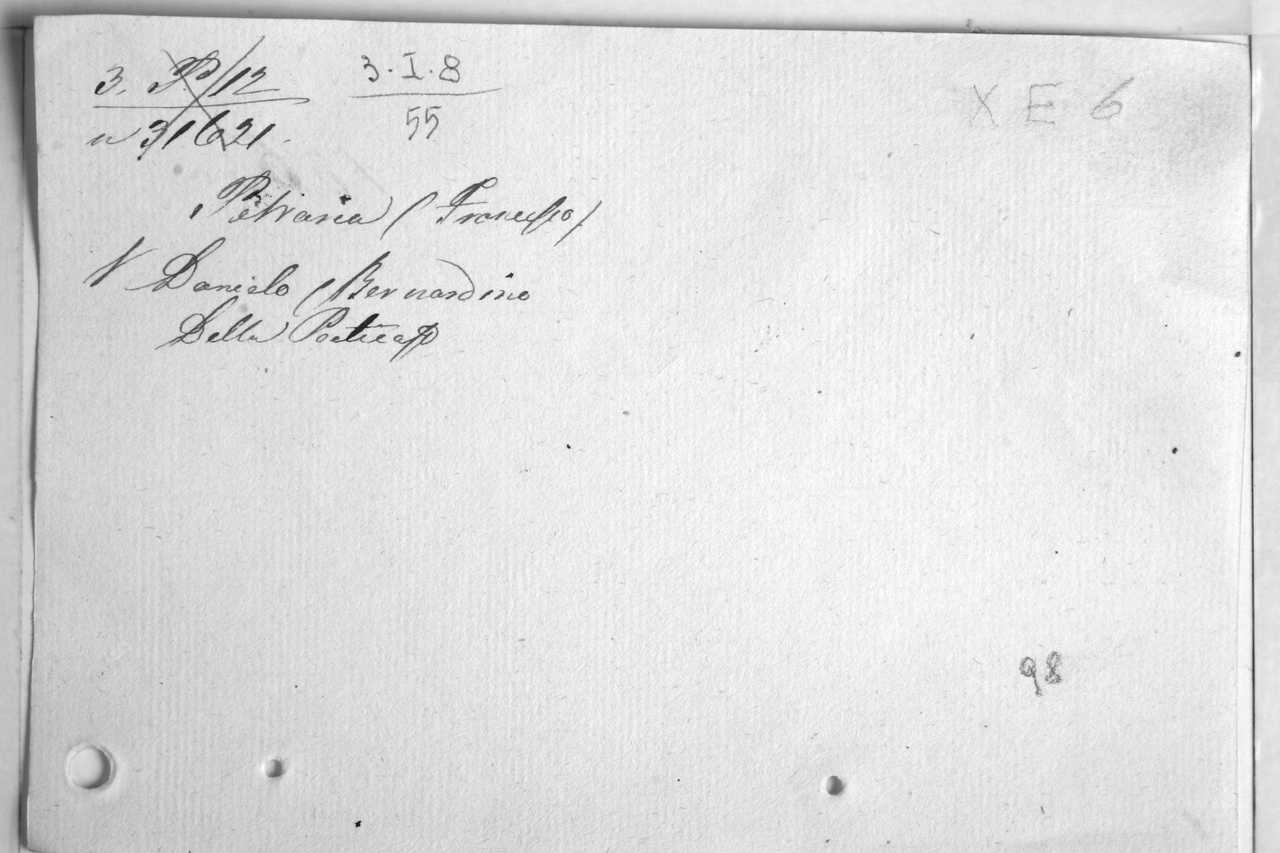 3. P/12
n 31621.
3.I.8
55
X E 6
Petraria (Francesco)
V Daniele (Bernardino
Della Poetica)
98